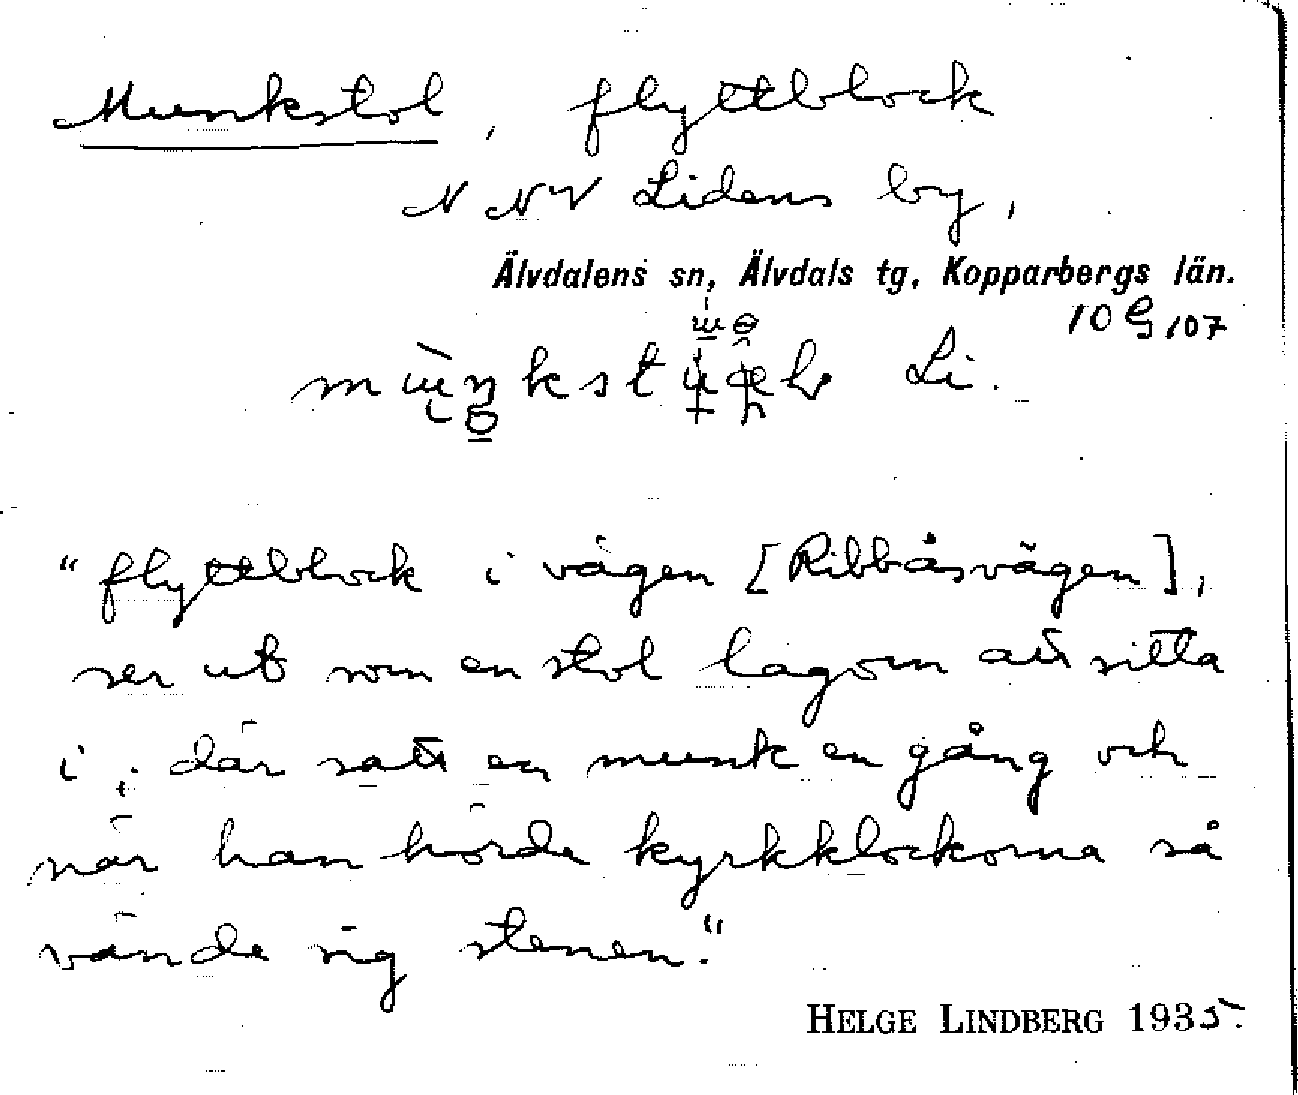 Munkstol, flyttblock
NNV Lidens by,
Älvdalens sn, Älvdals tg, Kopparbergs län.
10 G 107
Li.
"flyttblock i vägen [Ribbåsvägen],
ser ut som en stol lagom att sitta
i; där satt en munk en gång och
när han hörde kyrkklockorna så
vände sig stenen."
HELGE LINDBERG 1935.